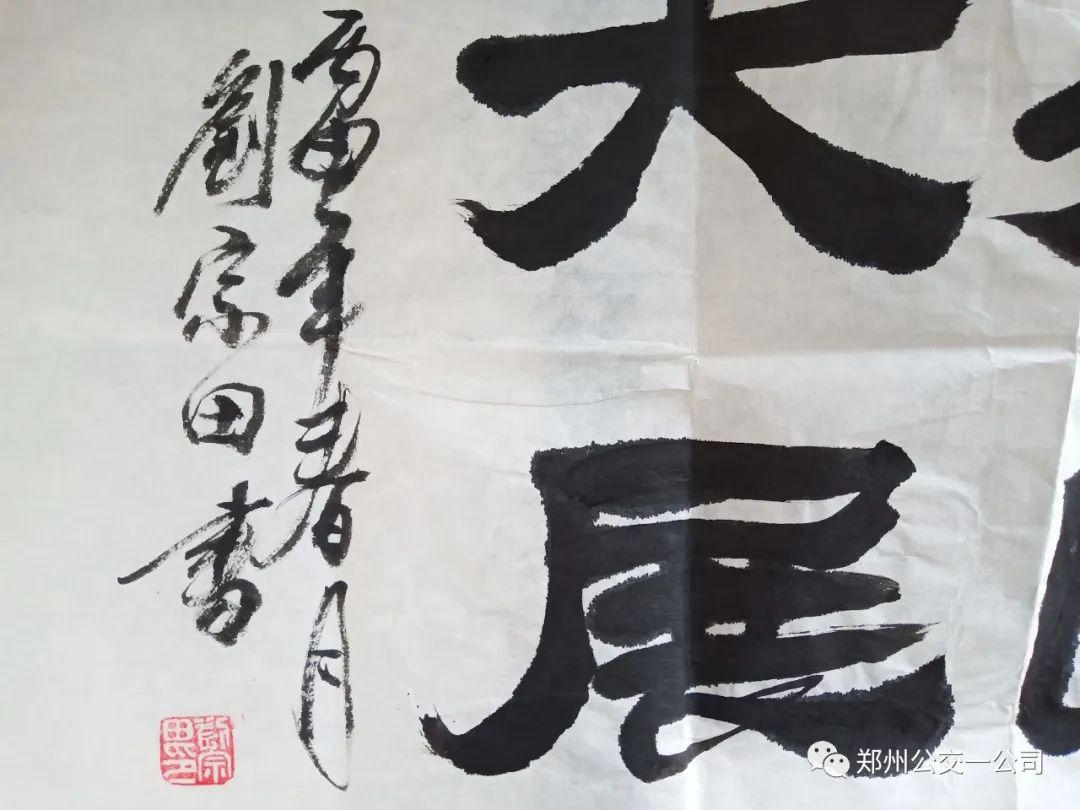 大展
丙申年春月
劉宗田書
劉宗田印
郑州公交一公司